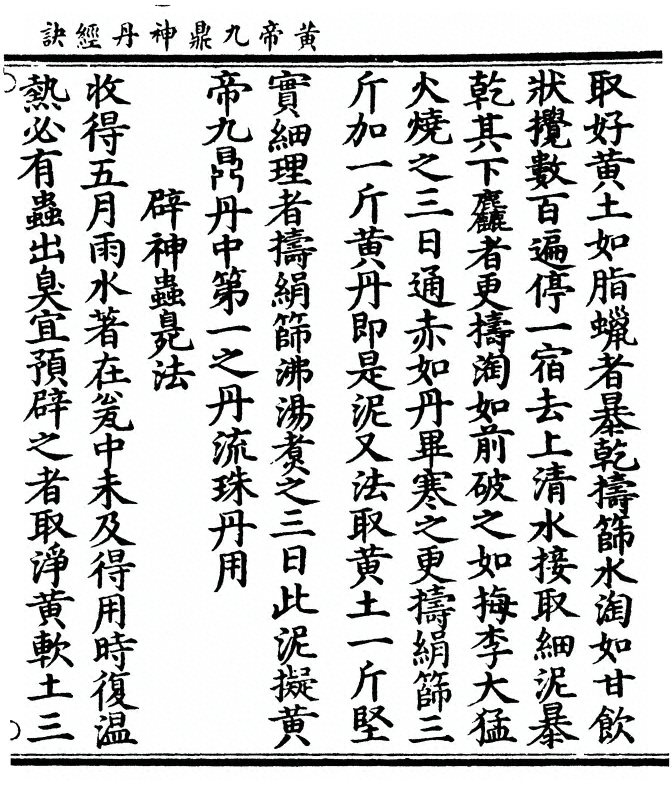 黄帝九鼎神丹經訣
取好黄土如脂蠟者暴乾擣篩水淘如甘飲
狀攪數百遍停一宿去上清水接取細泥暴
乾其下麤者更擣淘如前破之如梅李大猛
火燒之三日通赤如丹畢寒之更擣絹篩三
斤加一斤黄丹即是泥又法取黄土一斤堅
實細理者擣絹篩沸湯煑之三日此泥擬黄
帝九鼎丹中第一之丹流珠丹用
辟神蟲㲋法
收得五月雨水著在瓮中未及得用時復温
熱必有蟲出臭宜預辟之者取淨黄軟土三